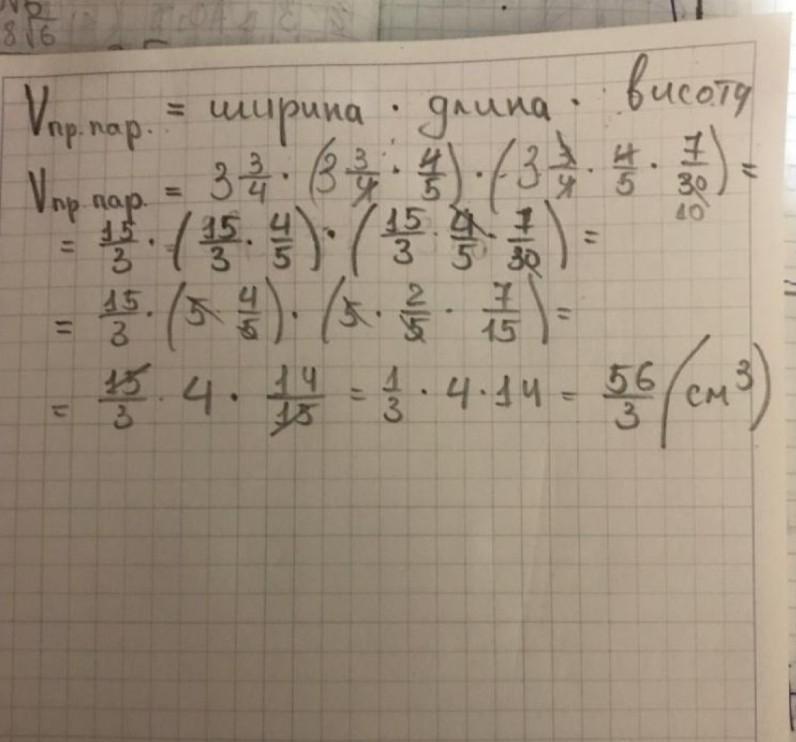 8√6
Vпр.пар. = ширина · длина · висоту
Vпр.пар. = 3 3/4 · (3 3/4 · 4/5) · (3 3/4 · 4/5 · 7/30) =
10
= 15/3 · (15/3 · 4/5) · (15/3 · 4/5 · 7/30) =
= 15/3 · (5 · 4/5) · (5 · 2/5 · 7/15) =
= 15/3 · 4 · 14/15 = 1/3 · 4 · 14 = 56/3 (см³)